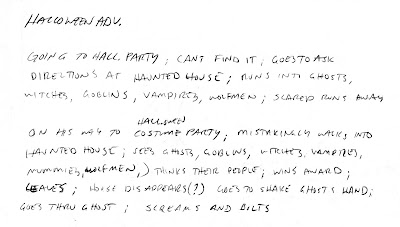 HALLOWEEN ADV.
GOING TO HALL. PARTY; CANT FIND IT; GOES TO ASK
DIRECTIONS AT HAUNTED HOUSE; RUNS INTO GHOSTS,
WITCHES, GOBLINS, VAMPIRES, WOLFMEN; SCARED RUNS AWAY
HALLOWEEN
ON HIS WAY TO COSTUME PARTY; MISTAKINGLY WALKS INTO
HAUNTED HOUSE; SEES GHOSTS, GOBLINS, WITCHES, VAMPIRES,
MUMMIES, WOLFMEN,) THINKS THEIR PEOPLE; WINS AWARD;
LEAVES; HOUSE DISAPPEARS(?) GOES TO SHAKE GHOST'S HAND;
GOES THRU GHOST; SCREAMS AND BOLTS